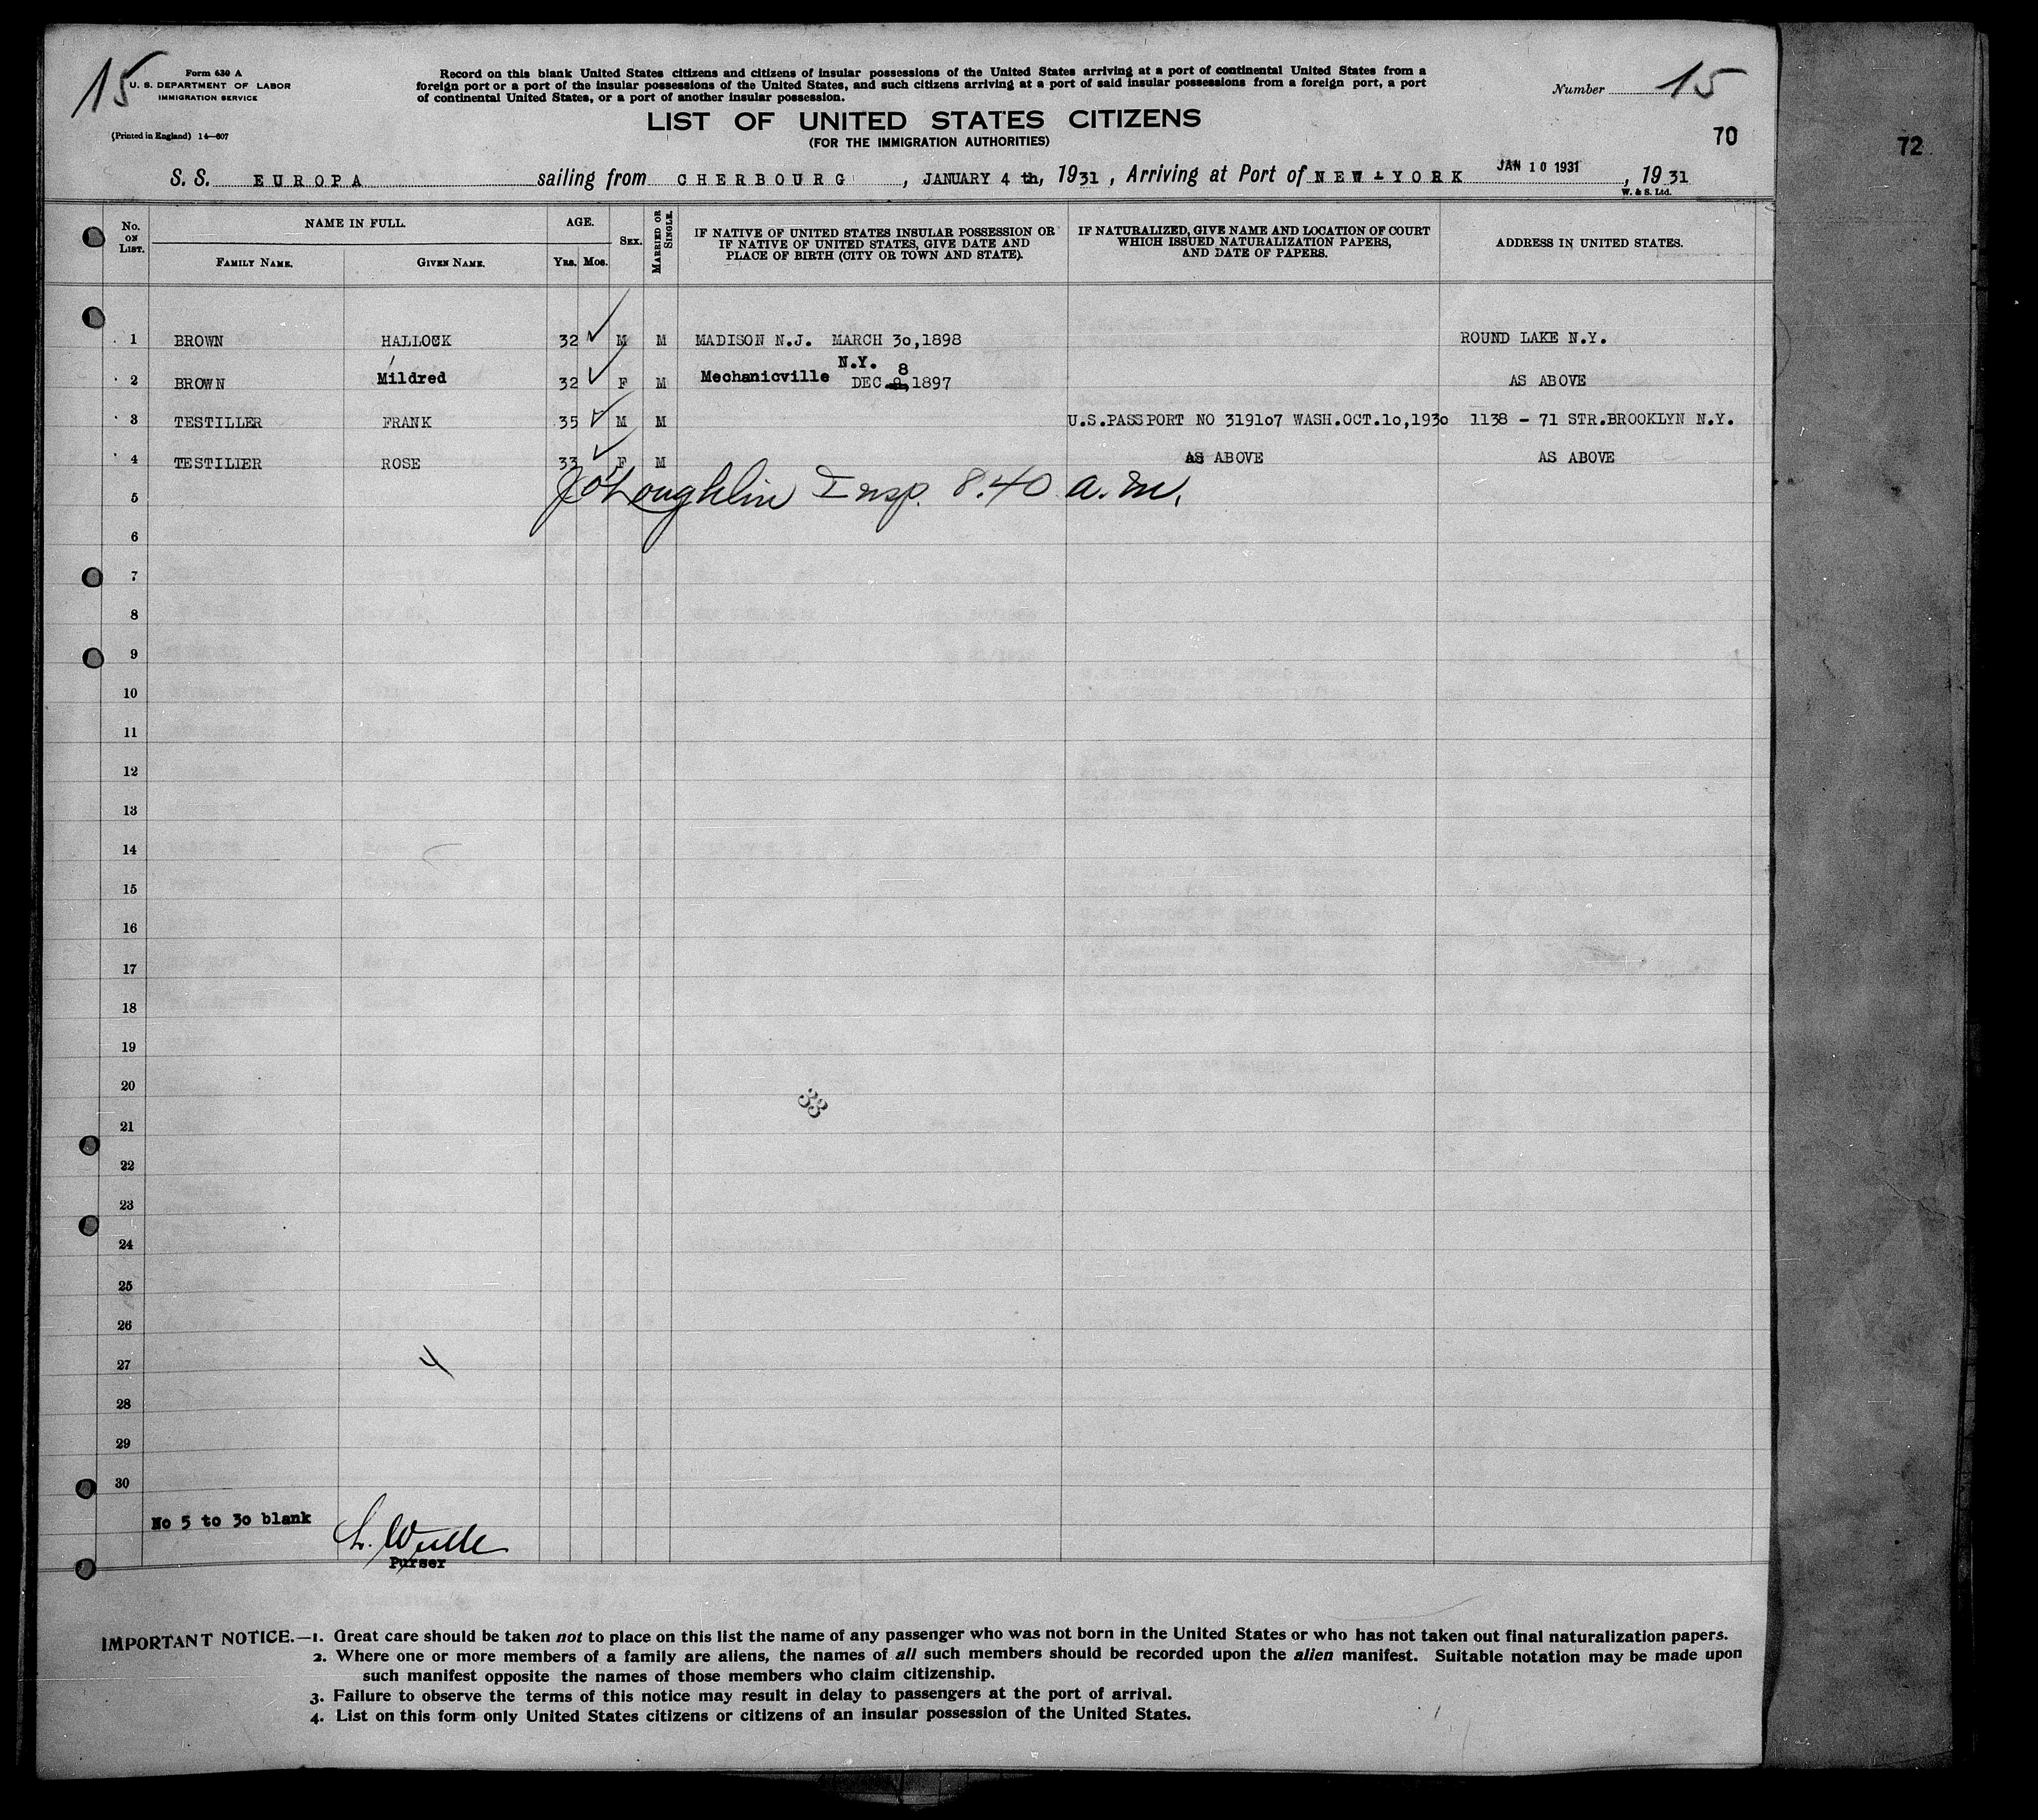 15
Form 630 A
U. S. DEPARTMENT OF LABOR
IMMIGRATION SERVICE
(Printed in England) 14—607
Record on this blank United States citizens and citizens of insular possessions of the United States arriving at a port of continental United States from a
foreign port or a port of the insular possessions of the United States, and such citizens arriving at a port of said insular possessions from a foreign port, a port
of continental United States, or a port of another insular possession.
Number 15
LIST OF UNITED STATES CITIZENS
(FOR THE IMMIGRATION AUTHORITIES)
70
72
S. S. EUROPA sailing from CHERBOURG, JANUARY 4 th, 1931, Arriving at Port of NEW-YORK JAN 10 1931, 1931
W. & S. Ltd.
No. ON LIST. NAME IN FULL. AGE. SEX. MARRIED OR SINGLE. IF NATIVE OF UNITED STATES INSULAR POSSESSION OR IF NATIVE OF UNITED STATES, GIVE DATE AND PLACE OF BIRTH (CITY OR TOWN AND STATE). IF NATURALIZED, GIVE NAME AND LOCATION OF COURT WHICH ISSUED NATURALIZATION PAPERS, AND DATE OF PAPERS. ADDRESS IN UNITED STATES.
FAMILY NAME. GIVEN NAME. Yrs. Mos.
1 BROWN HALLOCK 32 M M MADISON N.J. MARCH 30,1898 ROUND LAKE N.Y.
2 BROWN Mildred 32 F M Mechanicville N.Y. DEC 8,1897 AS ABOVE
3 TESTILLER FRANK 35 M M U.S.PASSPORT NO 319107 WASH.OCT.10,1930 1138 - 71 STR.BROOKLYN N.Y.
4 TESTILIER ROSE 33 F M AS ABOVE AS ABOVE
J O'Loughlin Insp. 8.40 a.m.
5
6
7
8
9
10
11
12
13
14
15
16
17
18
19
20
33
21
22
23
24
25
26
27
4
28
29
30
No 5 to 30 blank
Purser
IMPORTANT NOTICE.—1. Great care should be taken not to place on this list the name of any passenger who was not born in the United States or who has not taken out final naturalization papers.
2. Where one or more members of a family are aliens, the names of all such members should be recorded upon the alien manifest. Suitable notation may be made upon
such manifest opposite the names of those members who claim citizenship.
3. Failure to observe the terms of this notice may result in delay to passengers at the port of arrival.
4. List on this form only United States citizens or citizens of an insular possession of the United States.